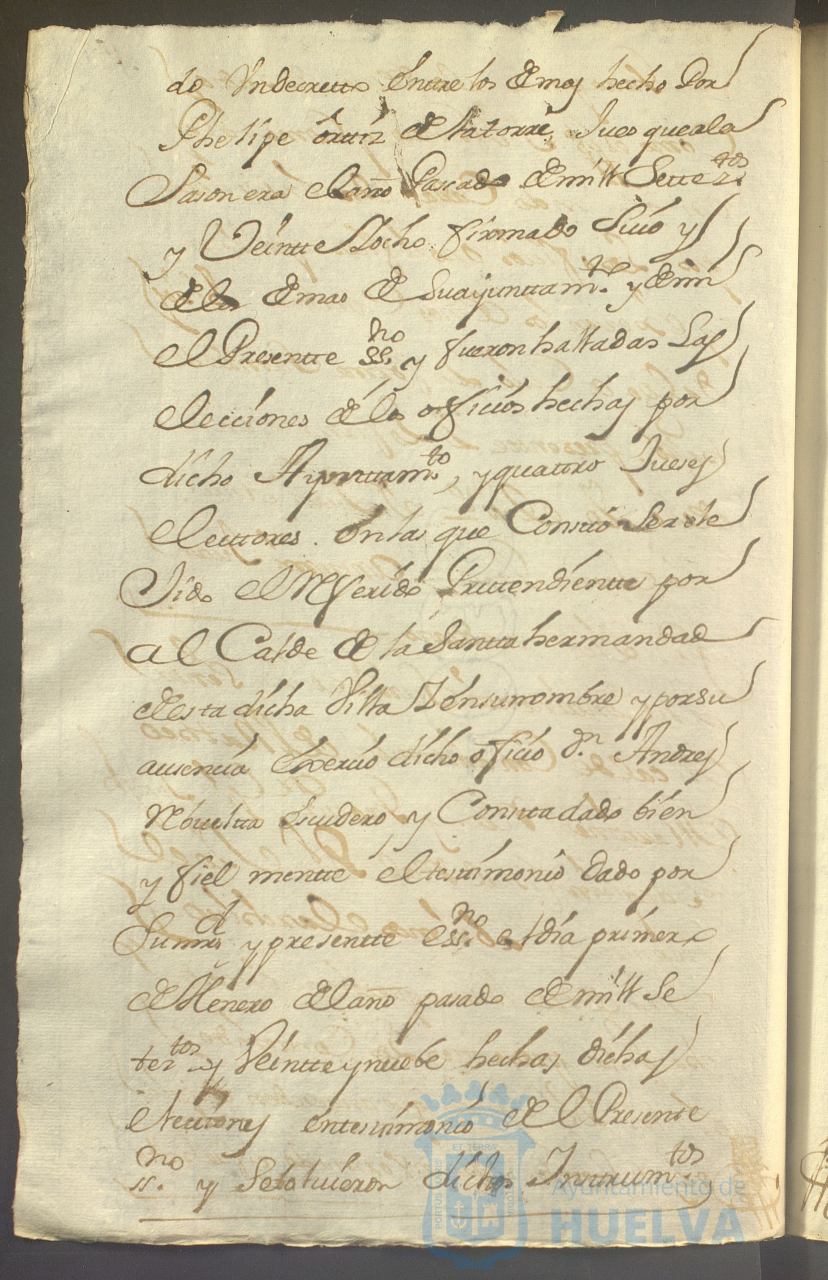 do Un decretto Entre los demas hecho Por
Phelipe ôrttiz de la torre, Jues que a la
Sason era el año Pascado de mill Settez.tos
y Veintte Y ocho firmado Suio y
de los demas de Su ayunttam.to y de mi
el Presentte ss.no y fueron halladas Las
elecciones de los ofiçios hechas por
dicho Ayunttam.to, y quattro Jueses
electtores. en las que Consttó Ser ele
Jido el Referido Prettendientte por
al Calde de la Santta hermandad
de esta dicha Villa Y en su nombre y por su
ausencia Exerció dicho ofício d.n Andres
Escudero y Constta dado bien
y fiel mentte el testtimonio dado por
Su m.d y presentte ess.no el día primero
de Henero del año pasado de mill Se
tez.tos y Veintte y nuebe hechas dichas
elecciones en testtimonio del Presentte
ss.no y Se lo tuieron dichos Insttrum.tos
Ayuntamiento de
HUELVA